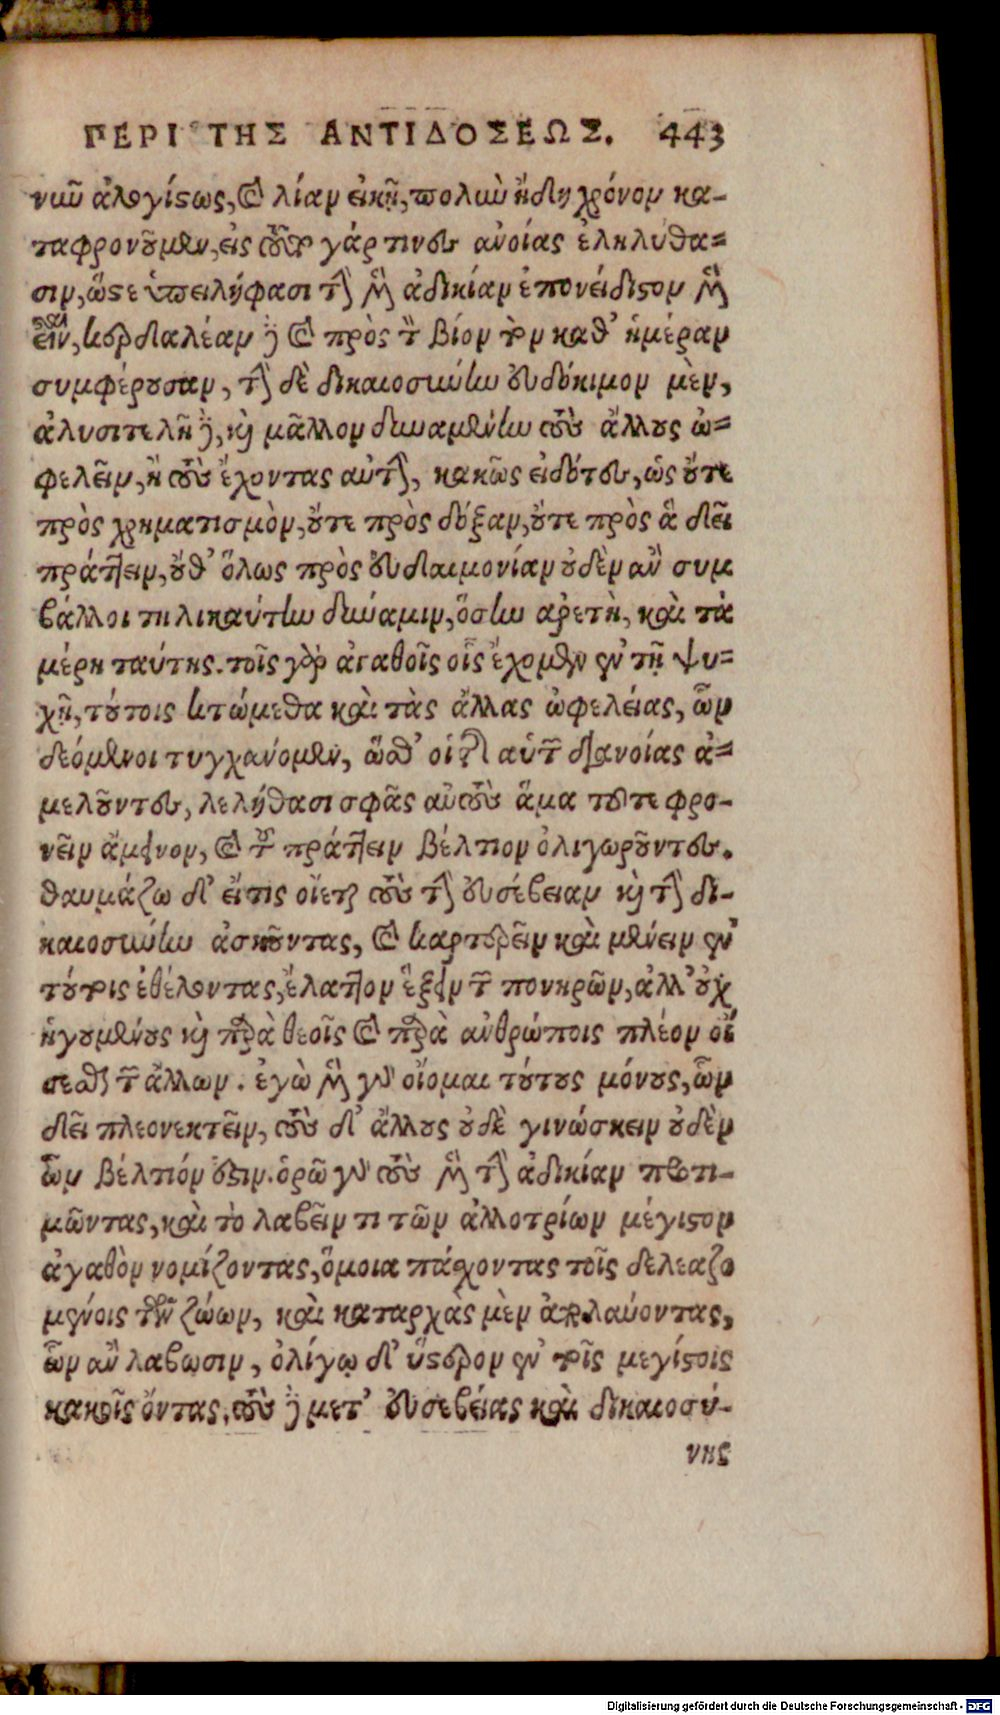 ΠΕΡΙ ΤΗΣ ΑΝΤΙΔΟΣΕΩΣ. 443
νῦν ἀλογίστως, καὶ λίαν εἰκῇ, πολὺν ἤδη χρόνον κα-
ταφρονοῦμεν, εἰς τοῦτο γάρ τινες ἀνοίας ἐληλύθα=
σιν, ὥστε ὑπειλήφασι τὴν μὲν ἀδικίαν ἐπονείδιστον μὲν
εἶναι, κερδαλέαν δὲ καὶ πρὸς τὸν βίον τὸν καθ' ἡμέραν
συμφέρουσαν, τὴν δὲ δικαιοσύνην εὐδόκιμον μὲν,
ἀλυσιτελῆ δὲ, καὶ μᾶλλον δυναμένην τοὺς ἄλλους ὠ=
φελεῖν, ἢ τοὺς ἔχοντας αὐτὴν, κακῶς εἰδότες, ὡς οὔτε
πρὸς χρηματισμὸν, οὔτε πρὸς δόξαν, οὔτε πρὸς ἃ δεῖ
πράττειν, οὔθ' ὅλως πρὸς εὐδαιμονίαν οὐδὲν ἂν συμ
βάλλοι τηλικαύτην δύναμιν, ὅσην ἀρετὴ, καὶ τὰ
μέρη ταύτης. τοῖς γὰρ ἀγαθοῖς οἷς ἔχομεν ἐν τῇ ψυ=
χῇ, τούτοις κτώμεθα καὶ τὰς ἄλλας ὠφελείας, ὧν
δεόμενοι τυγχάνομεν, ὥσθ' οἱ τῆς αὑτῶν διανοίας ἀ=
μελοῦντες, λελήθασι σφᾶς αὐτοὺς ἅμα τοῦτε φρο-
νεῖν ἄμεινον, καὶ τοῦ πράττειν βέλτιον ὀλιγωροῦντες.
θαυμάζω δ' εἴ τις οἴεται τοὺς τὴν εὐσέβειαν καὶ τὴν δι-
καιοσύνην ἀσκοῦντας, καὶ καρτερεῖν καὶ μένειν ἐν
τούτοις ἐθέλοντας, ἔλαττον ἕξειν τῶν πονηρῶν, ἀλλ' οὐχ
ἡγουμένους καὶ παρὰ θεοῖς καὶ παρὰ ἀνθρώποις πλέον οἴ
σεσθαι τῶν ἄλλων. ἐγὼ μὲν γὰρ οἴομαι τούτους μόνους, ὧν
δεῖ πλεονεκτεῖν, τοὺς δ' ἄλλους οὐδὲ γινώσκειν οὐδὲν
ὧν βέλτιόν ἐστιν. ὁρῶ γὰρ τοὺς μὲν τὴν ἀδικίαν προτι-
μῶντας, καὶ τὸ λαβεῖν τι τῶν ἀλλοτρίων μέγιστον
ἀγαθὸν νομίζοντας, ὅμοια πάσχοντας τοῖς δελεαζο
μένοις τῶν ζώων, καὶ καταρχὰς μὲν ἀπολαύοντας,
ὧν ἂν λάβωσιν, ὀλίγῳ δ' ὕστερον ἐν τοῖς μεγίστοις
κακοῖς ὄντας. τοὺς δὲ μετ' εὐσεβείας καὶ δικαιοσύ-
νης
Digitalisierung gefördert durch die Deutsche Forschungsgemeinschaft - DFG